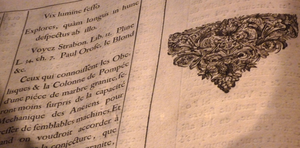 Vix lumine fesso
Explorer, quàm longus in hunc
despectus ab illo.
Voyez Strabon. Lib. 11. Pline
L. 10. ch. 7. Paul Orose, le Blond
&c.
Ceux qui connoissent les Obe-
& la Colonne de Pompée
d'une piéce de marbre granite,
ront moins surpris de la capacité
Mechanique des Anciens pour
resser de semblables machines. Et
and on voudroit accorder à
conjecture, que